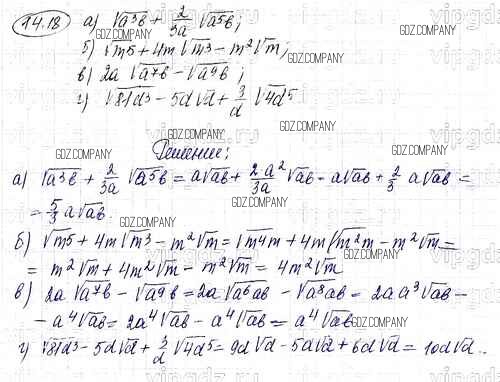 14.18 а) √a³b + 2/3a √a⁵b;
б) √m5 + 4m√m3 - m²√m;
в) 2a√a⁷b - √a⁹b;
г) √81d³ - 5d√d + 3/d √4d⁵
Решение:
а) √a³b + 2/3a √a⁵b = a√ab + 2a²/3a √ab = a√ab + 2/3 a√ab =
= 5/3 a√ab.
б) √m5 + 4m√m3 - m²√m = √m4m + 4m√m²m - m²√m =
= m²√m + 4m²√m - m²√m = 4m²√m
в) 2a√a⁷b - √a⁹b = 2a√a⁶ab - √a⁸ab = 2aa³√ab -
- a⁴√ab = 2a⁴√ab - a⁴√ab = a⁴√ab
г) √81d³ - 5d√d + 3/d √4d⁵ = 9d√d - 5d√d + 6d√d = 10d√d.
GDZ.COMPANY
vipgdz